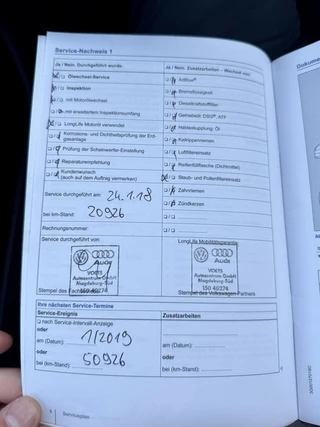 Service-Nachweis 1
Ja / Nein. Durchgeführt wurde:
Ölwechsel-Service
Inspektion
mit Motorölwechsel
mit erweitertem Inspektionsumfang
LongLife Motoröl verwendet
Korrosions- und Dichtheitsprüfung der Erdgasanlage
Prüfung der Scheinwerfer-Einstellung
Reparaturempfehlung
Kundenwunsch
(auch auf dem Auftrag vermerken)
Service durchgeführt am: 24.1.18
bei km-Stand: 20926
Rechnungsnummer:
Service durchgeführt von:
Audi
VOETS
Autozentrum GmbH
Magdeburg-Süd
Stempel des
Ja / Nein. Zusatzarbeiten – Wechsel von:
AdBlue®
Bremsflüssigkeit
Dieselkraftstofffilter
Getriebeöl: DSG®, ATF
Haldexkupplung Öl
Keilrippenriemen
Luftfiltereinsatz
Reifenfüllflasche (Dichtmittel)
Staub- und Pollenfiltereinsatz
Zahnriemen
Zündkerzen
LongLife Mobilitätsgarantie
Audi
VOETS
Autozentrum GmbH
Magdeburg-Süd
Stempel des Volkswagen-Partners
Ihre nächsten Service-Termine
Service-Ereignis
nach Service-Intervall-Anzeige
oder
am (Datum): 1/2019
oder
bei (km-Stand): 50926
Zusatzarbeiten
am (Datum):
oder
bei (km-Stand):
Serviceplan